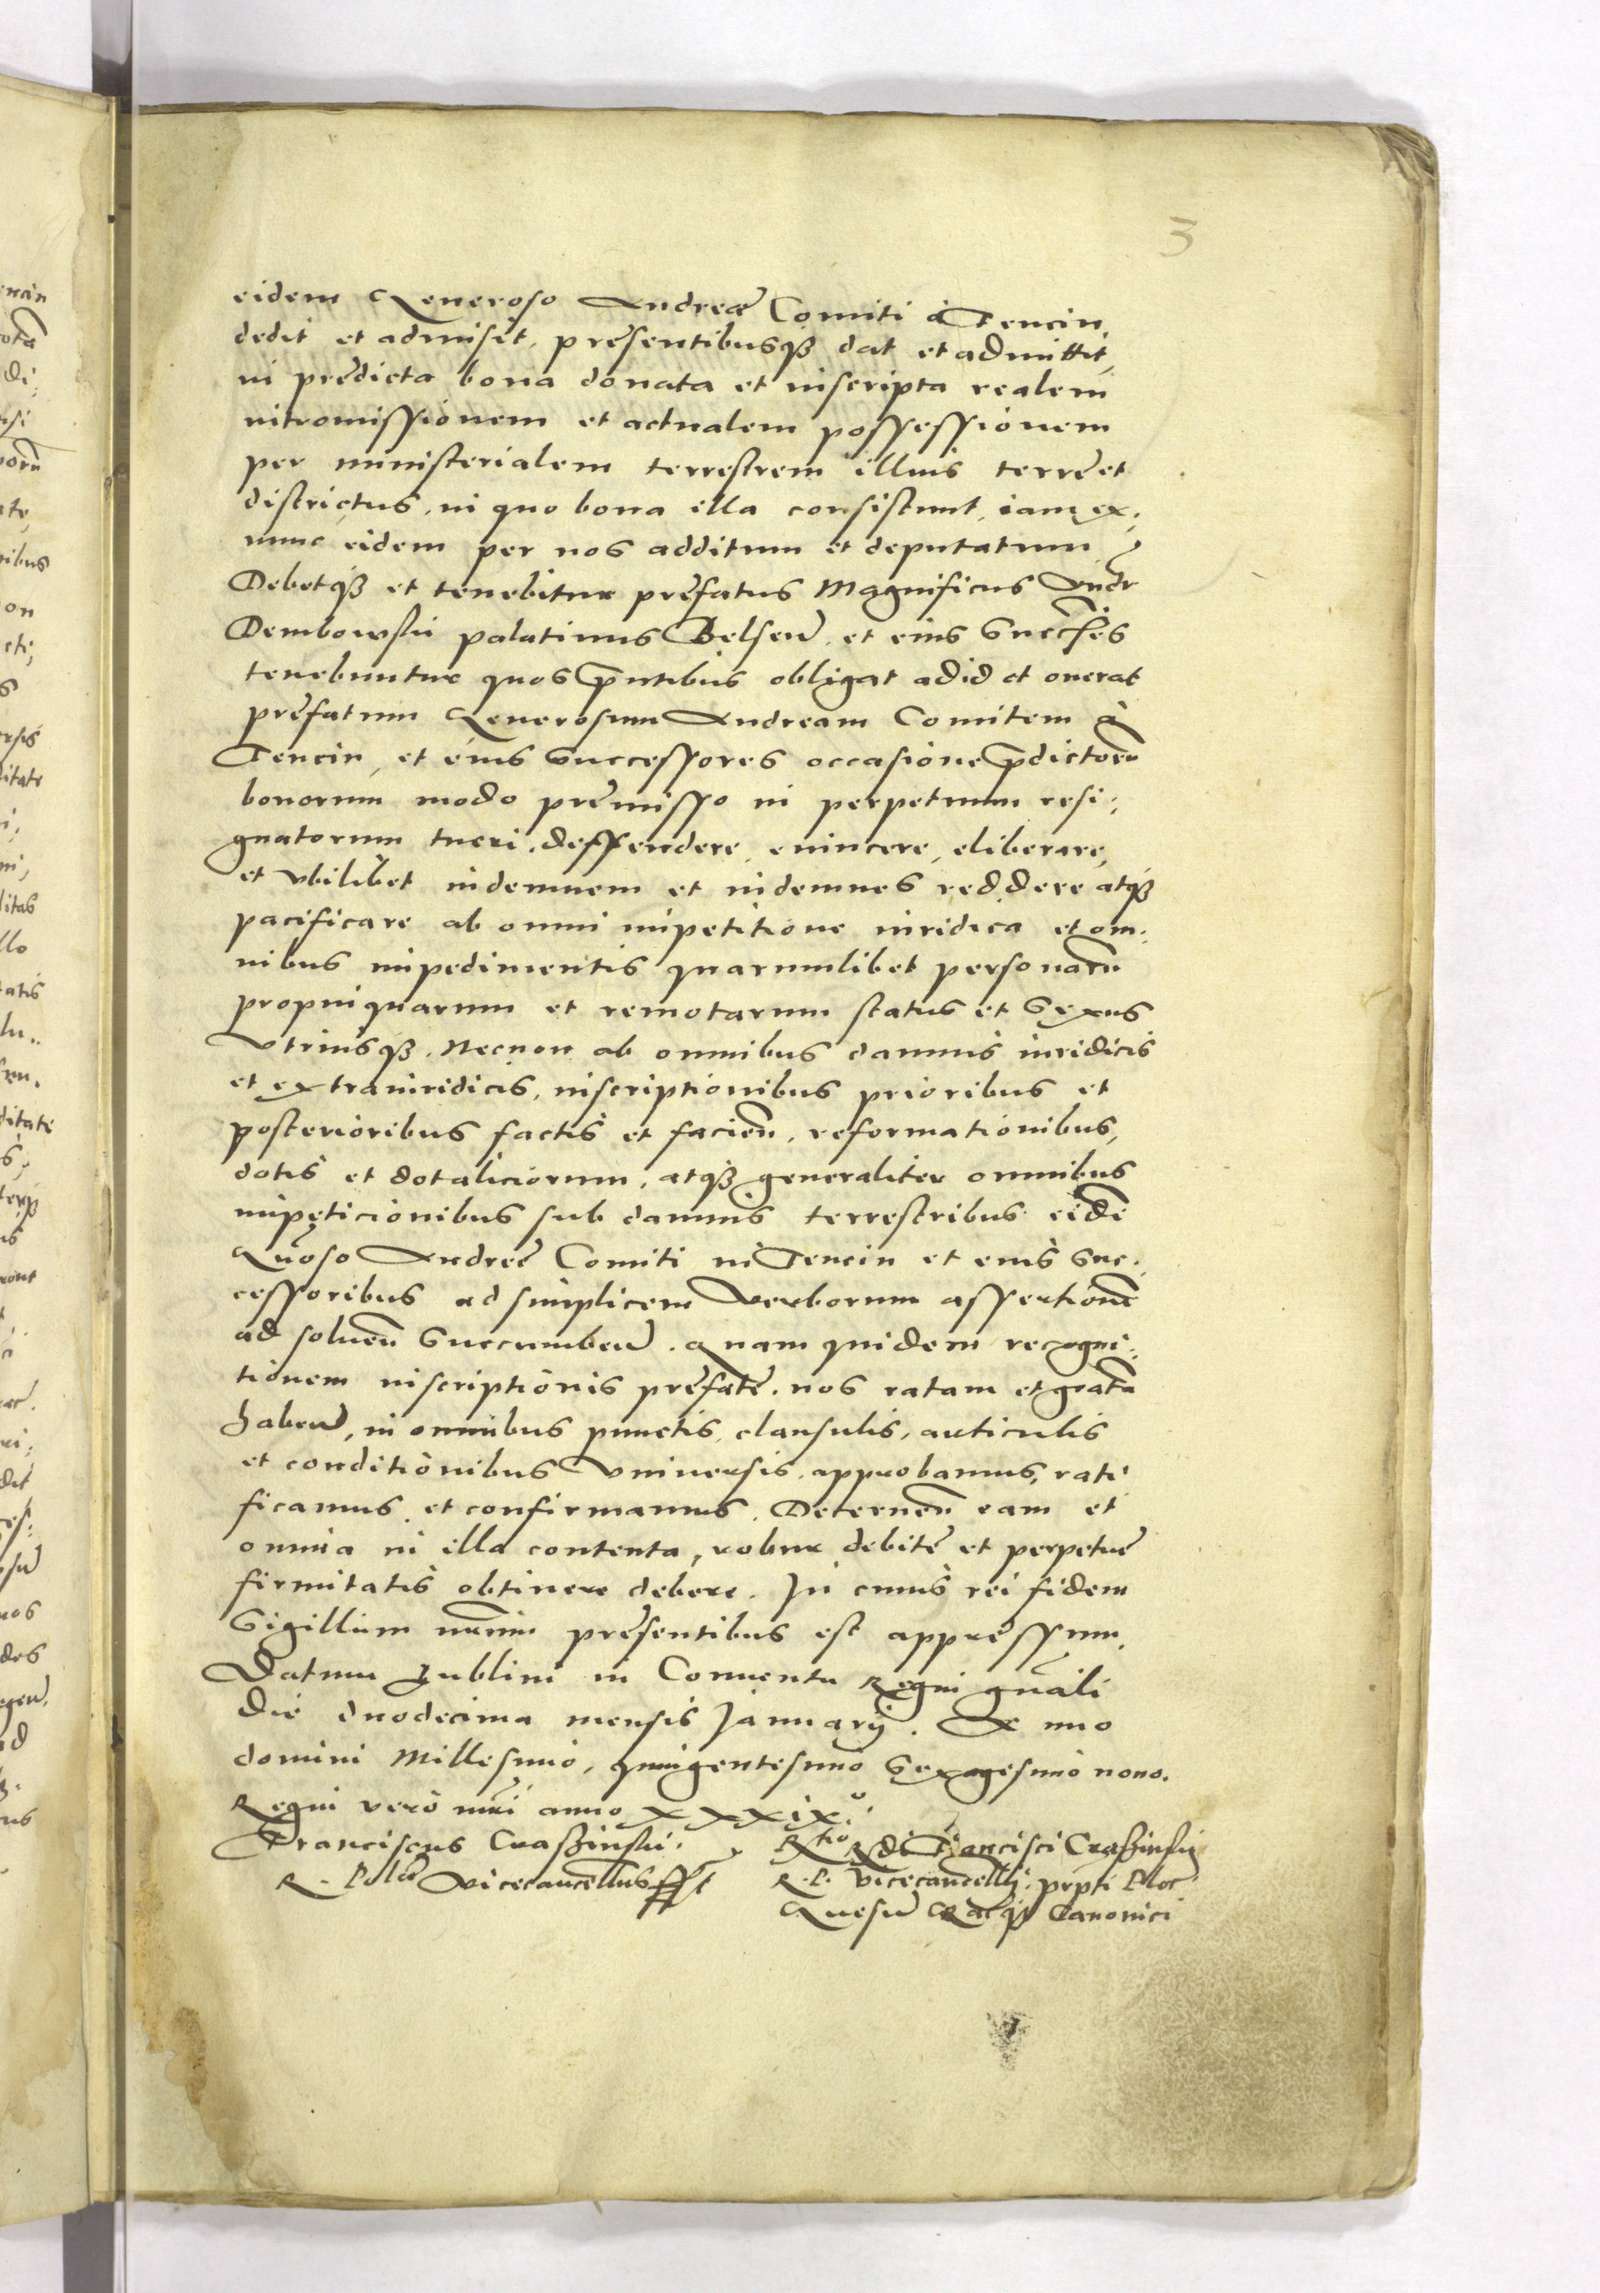 3
eidem Generoso Andreæ Comiti à Tencin,
dedit et admisit, præsentibusq3 dat et admittit,
in prædicta bona donata et inscripta realem
intromissionem et actualem possessionem
per ministerialem terrestrem illius terræ et
districtus, in quo bona illa consistunt, iam ex:
nunc eidem per nos additum et deputatum
Debetq3 et tenebitur præfatus Magnificus Andr
Dembowski palatinus Belseñ, et eius Succ̃ses
tenebuntur quos p̃ntibus obligat ad id et onerat
præfatum Generosum Andream Comitem à
Tencin, et eius Successores occasione p̃dictorũ
bonorum modo præmisso in perpetuum resi:
gnatorum tueri, deffendere, euincere, eliberare,
et vbilibet indemnem et indemnes reddere atq3
pacificare ab omni impetitione iuridica et om:
nibus impedimentis quarumlibet personarũ
propinquarum et remotarum status et Sexus
Vtriusq3. Necnon ab omnibus damnis iuridicis
et extraiuridicis, inscriptionibus prioribus et
posterioribus factis et facieñ, reformationibus,
dotis et dotaliciorum, atq3 generaliter omnibus
impeticionibus sub damnis terrestribus eidẽ
Gñoso Andreæ Comiti in Tencin et eius Suc:
cessoribus ad simplicem Verborum assertionẽ
ad solueñ Succumbeñ. Quam quidem recogni:
tionem inscriptionis præfatæ, nos ratam et gratã
habeñ, in omnibus punctis, clausulis, articulis
et conditionibus Vniuersis, approbamus, rati
ficamus et confirmamus. Decerneñ eam et
omnia in illa contenta, robur debitæ et perpetuæ
firmitatis obtinere debere. In cuius rei fidem
Sigillum nrũm præsentibus est appressum.
Datum Lublini in Conuentu Regni gñali
Die duodecima mensis Januarij. Anno
domini Millesimo, quingentesimo Sexagesimo nono.
Regni verò nrĩ anno xxxix⁰.
Franciscus Craßinski.
R. Polæ Vicecancellus sst
Rtio Rdi Francisci Craßinskij
R. P. Vicecancellij. prpti Ploc
Gnesñ Craq3 Canonici